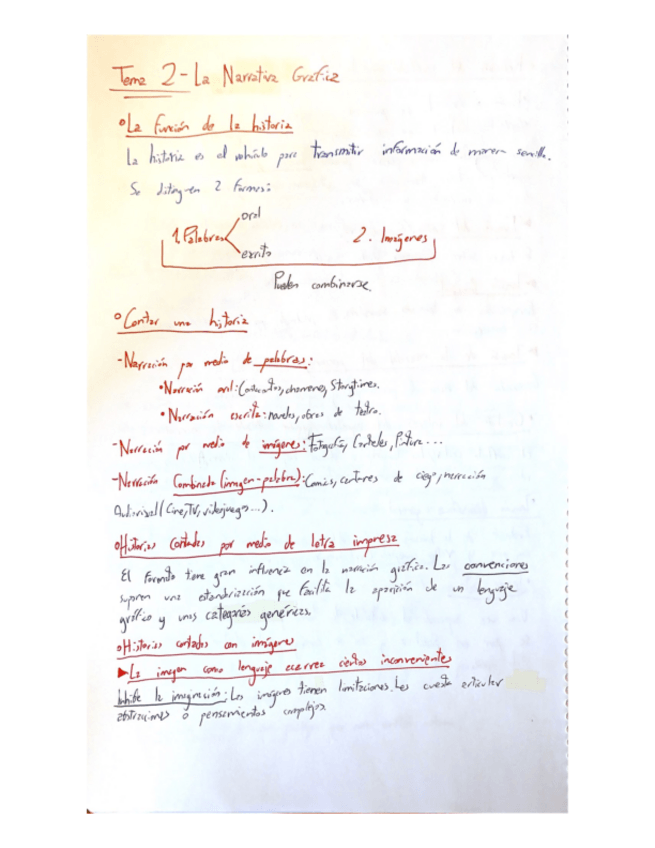 Tema 2 - La Narrativa Gráfica
• La función de la historia
La historia es el vehículo para transmitir información de manera sencilla.
Se distinguen 2 formas:
oral
1. Palabras 2. Imágenes
escrita
Pueden combinarse.
• Contar una historia
- Narración por medio de palabras:
• Narración oral: Storytimes.
• Narración escrita: novelas, obras de teatro.
- Narración por medio de imágenes: Fotografía, Carteles, Pintura...
- Narración Combinada (imagen-palabra): Comics, cantares de ciego, narración
Audiovisual (Cine, TV, videojuegos...).
• Historias contadas por medio de letra impresa
El formato tiene gran influencia en la narración gráfica. Las convenciones
suponen una estandarización que facilita la aparición de un lenguaje
gráfico y unas categorías genéricas.
• Historias contadas con imágenes
▶ La imagen como lenguaje acarrea ciertos inconvenientes
Inhibe la imaginación: Las imágenes tienen limitaciones. Les cuesta articular
abstracciones o pensamientos complejos.